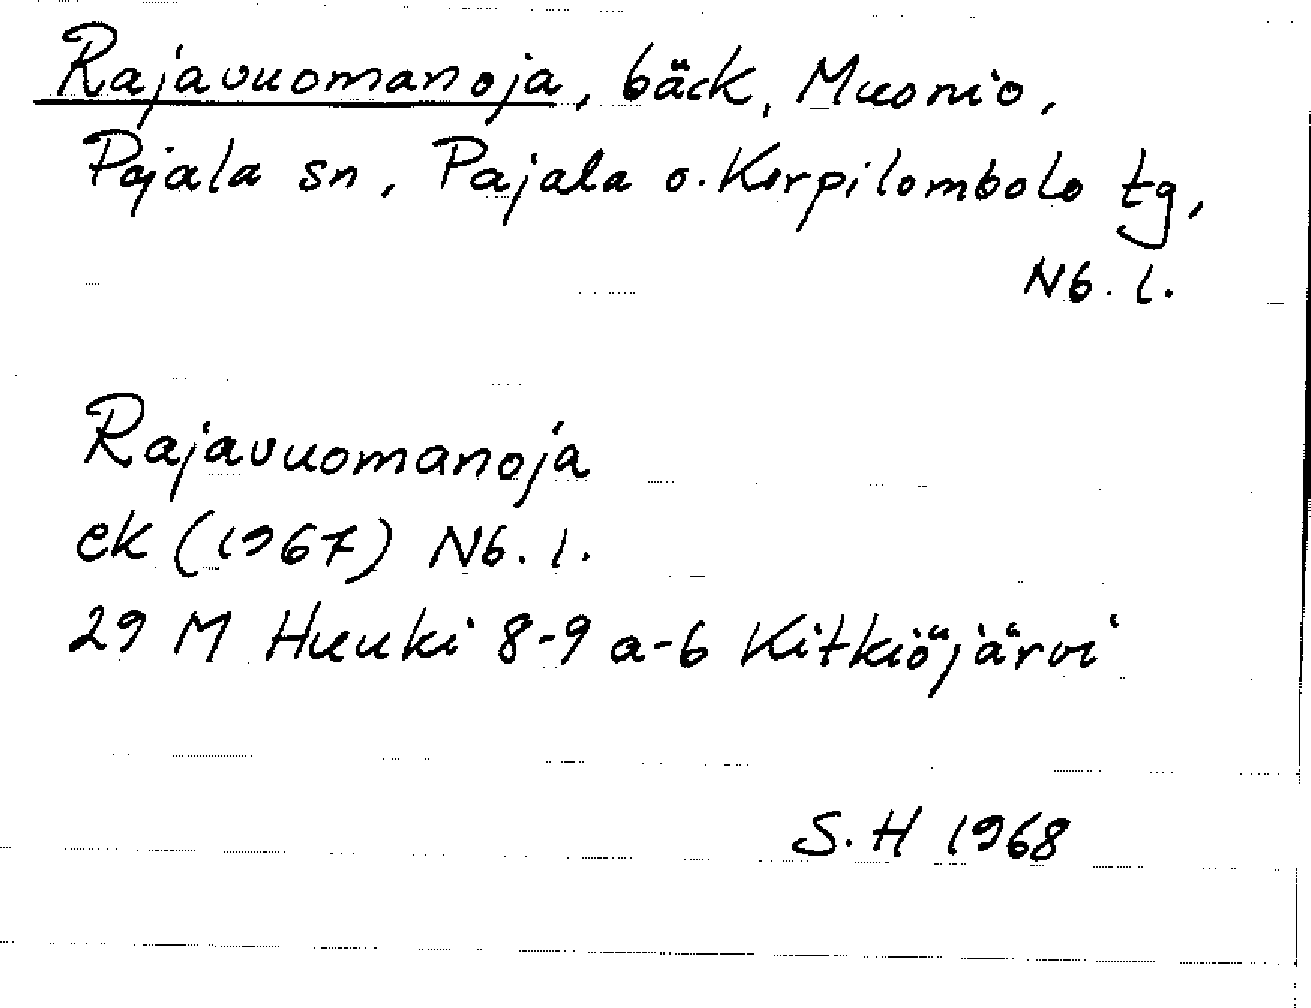 Rajavuomanoja, bäck, Muonio,
Pajala sn, Pajala o. Korpilombolo tg,
Nb. l.
Rajavuomanoja
ek (1967) Nb. l.
29 M Huuki 8-9 a-b Kitkiöjärvi
S. H 1968